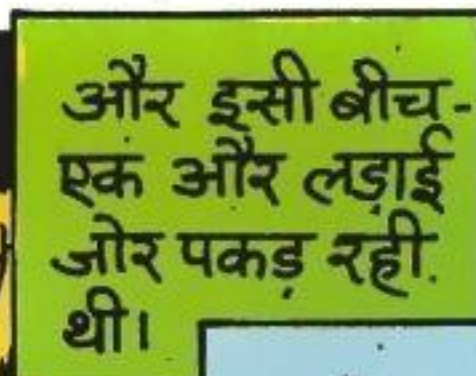 और इसी बीच-
एक और लड़ाई
जोर पकड़ रही
थी।